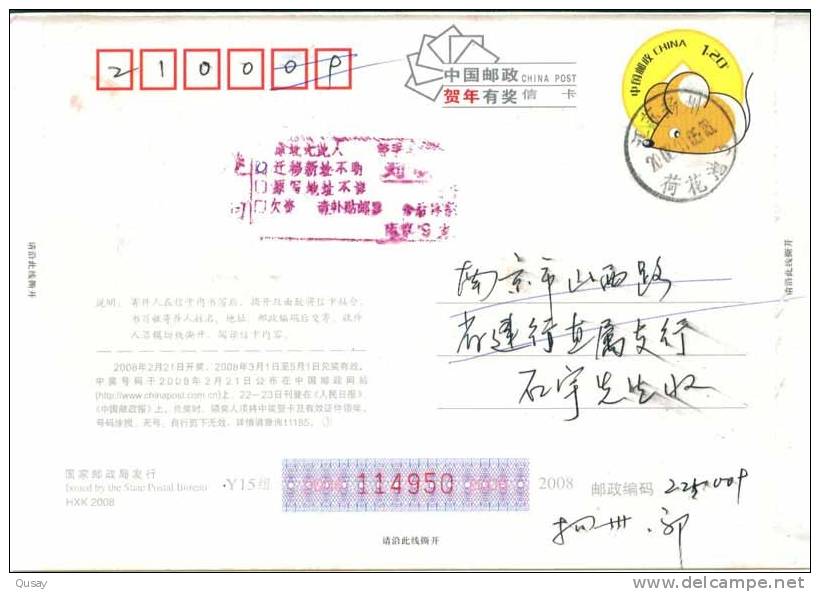 210009
中国邮政 CHINA POST
贺年有奖信 卡
中国邮政 CHINA
1.20
荷花池
迁移新址不明
原写地址不详
欠资 请补贴邮票
南京市山西路
省建行直属支行
石宇先生收
请沿此线撕开
请沿此线撕开
说明：寄件人在信卡内书写后，揭开双面胶将信卡粘合，
书写收寄件人姓名、地址、邮政编码后交寄，收件
人沿横切线撕开，阅读信卡内容。
2008年2月21日开奖，2008年3月1日至5月1日兑奖有效。
中奖号码于2008年2月21日公布在中国邮政网站
(http://www.chinapost.com.cn)上，22－23日刊登在《人民日报》
《中国邮政报》上。兑奖时，须持中奖贺卡及有效证件领奖，
号码涂损、无号、自行剪下无效。详情请垂询11185。
国家邮政局发行
Issued by the State Postal Bureau
HXK 2008
·Y15组
2008 114950 2008
2008
邮政编码 225009
扬州.郭
请沿此线撕开
Qusay
delcampe.net